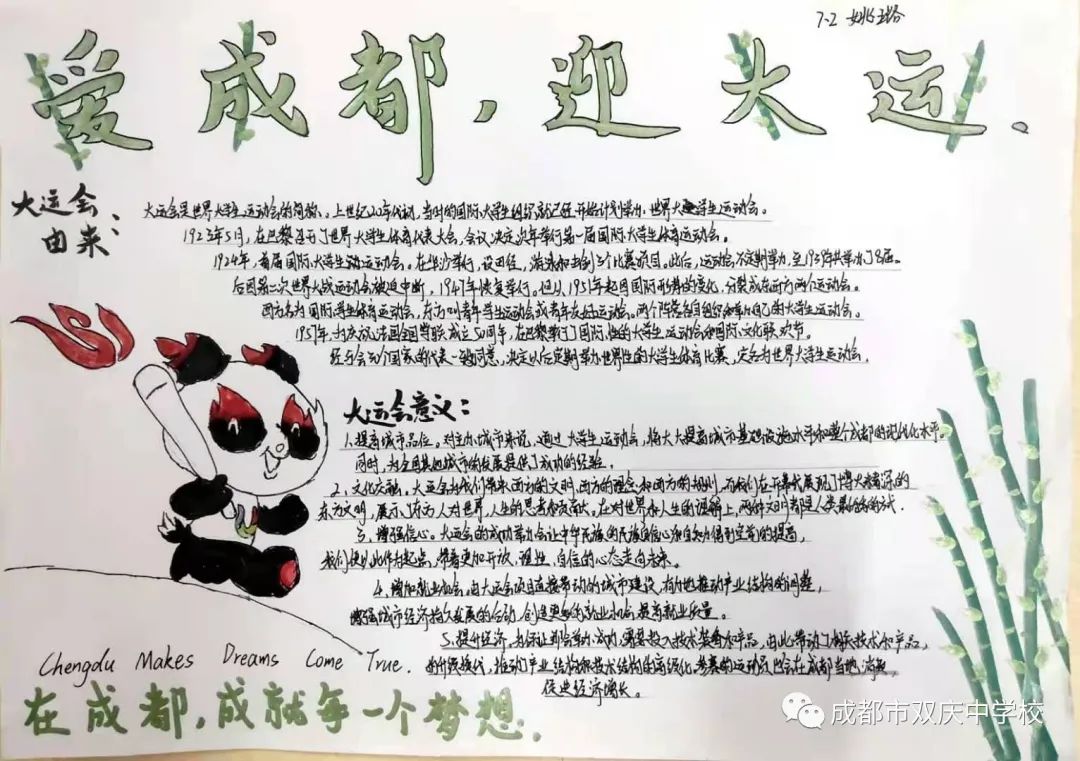 7-2 姚
爱成都，迎大运.
大运会
由来：
大运会是世界大学生运动会的简称。上世纪20年代初，当时的国际大学生组织就已经开始计划举办世界大学生运动会。
1923年5月，在巴黎召开了世界大学生体育代表大会，会议决定次年举行第一届国际大学生体育运动会。
1924年，首届国际大学生运动会在华沙举行，设田径，游泳和击剑三个比赛项目。此后，运动会不定期举办，至1939年共举办了8届。
后因第二次世界大战运动会被迫中断，1947年恢复举行，但从1951年起因国际形势的变化，分裂成东西方两个运动会。
西方名为国际学生体育运动会，东方叫青年学生运动会或青年友好运动会。两个阵营各自组织和举办自己的大学生运动会。
1957年，为庆祝法国全国学联成立50周年，在巴黎举行了国际性的大学生运动会和国际文化联欢节。
经与会30个国家的代表一致同意，决定以后定期举办世界性的大学生体育比赛，定名为世界大学生运动会。
大运会意义：
1、提高城市品位。对主办城市来说，通过大学生运动会，将大大提高城市基础设施水平和整个成都的现代化水平。
同时，为全国其他城市的发展提供了成功的经验。
2、文化交融。大运会为我们带来西方的文明，西方的理念和西方的规则，而我们在开幕式展现了博大精深的
东方文明，展示了东方人对世界，人生的思考和表达，在对世界和人生的理解上，两种文明都是人类最
3、增强信心。大运会的成功举办会让中华民族的民族自信心和自知力得到空前的提高，
我们便以此作为起点，带着更加开放，理性，自信的心态走向未来。
4、增加就业机会。由大运会项目直接带动的城市建设，有力地推动产业结构的调整，
增强城市经济持久发展的后劲，创造更多的就业机会，提高就业质量。
5、提升经济。为保证举办成功，需要投入技术装备和产品，由此带动了相关技术和产品，
的升级换代，推动了产业结构和技术结构的高级化，参赛的运动员也会在成都当地消费，
促进经济增长。
Chengdu Makes Dreams Come True.
在成都，成就每一个梦想.
成都市双庆中学校